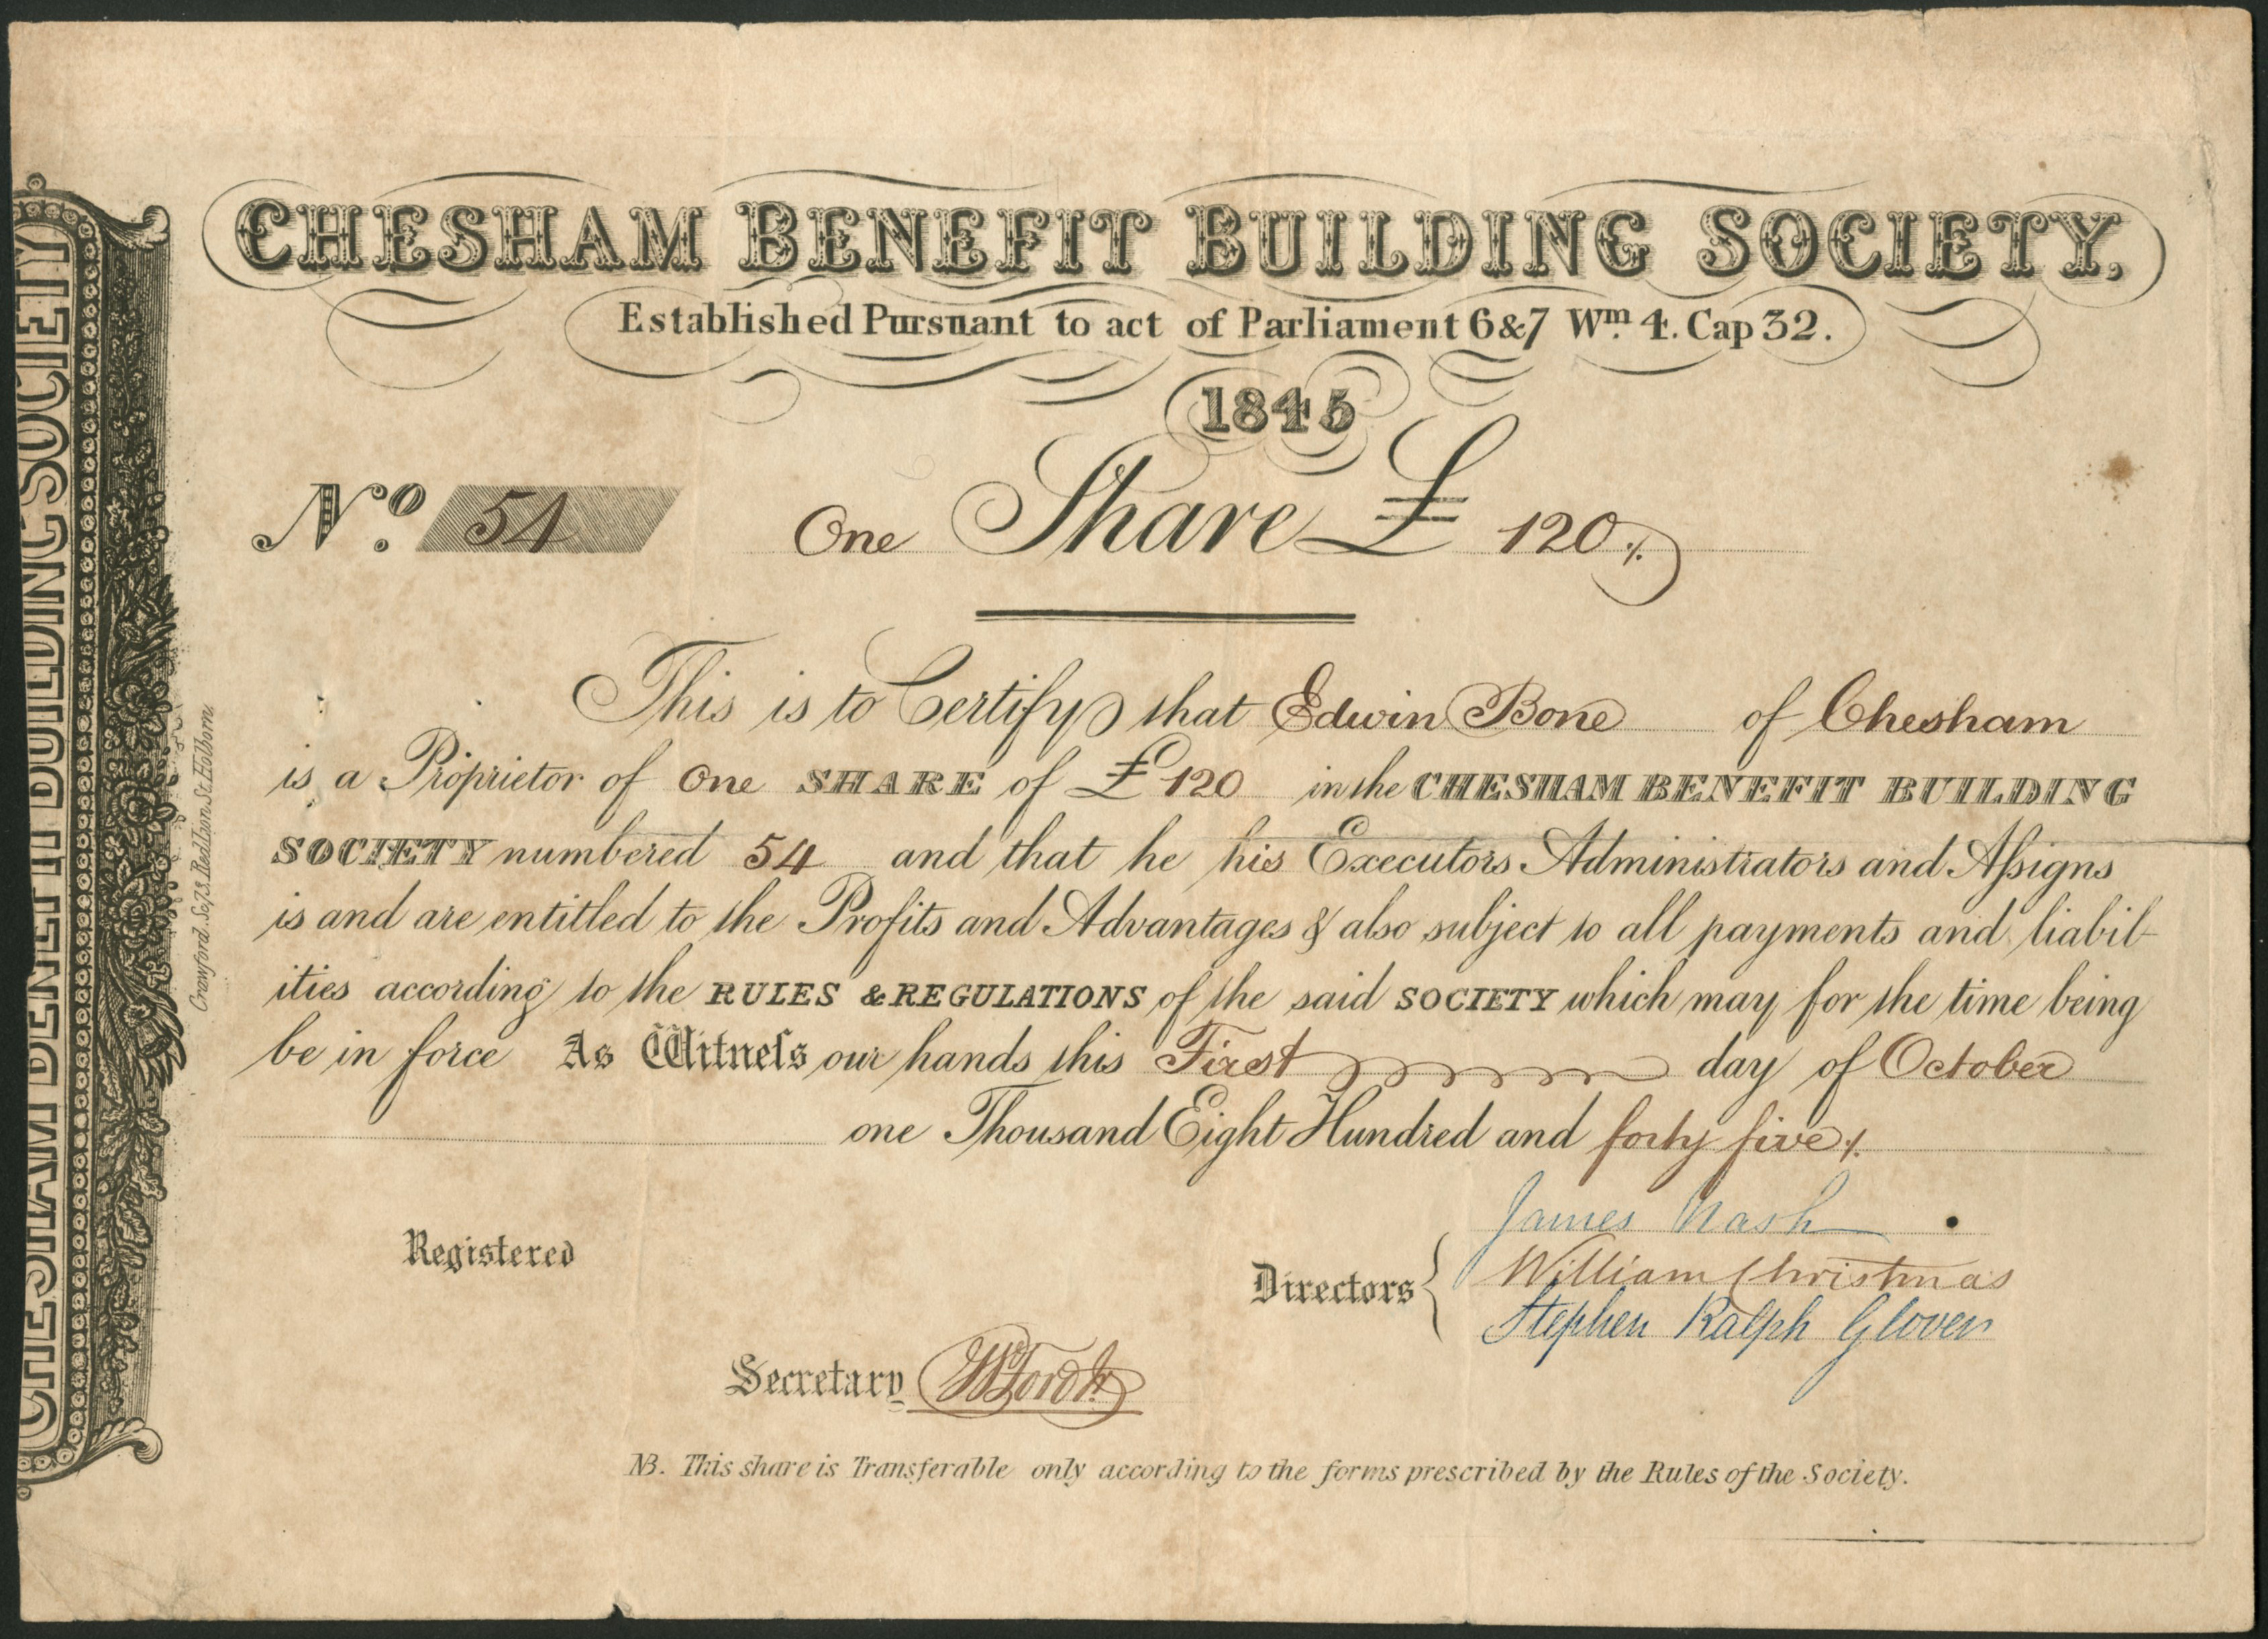 CHESHAM BENEFIT BUILDING SOCIETY
CHESHAM BENEFIT BUILDING SOCIETY,
Established Pursuant to act of Parliament 6&7 Wm. 4. Cap 32.
1845
No. 54 One Share £ 120
This is to Certify that Edwin Bone of Chesham
is a Proprietor of One SHARE of £ 120 in the CHESHAM BENEFIT BUILDING
SOCIETY numbered 54 and that he his Executors Administrators and Aſsigns
is and are entitled to the Profits and Advantages & also subject to all payments and liabil-
ities according to the RULES & REGULATIONS of the said SOCIETY which may for the time being
be in force As Witneſs our hands this First day of October
one Thousand Eight Hundred and forty five
Registered
Directors
James Nash
William Christmas
Stephen Ralph Glover
Secretary
NB. This share is Transferable only according to the forms prescribed by the Rules of the Society.
Crawford. Sc. 73. Red Lion St. Holborn